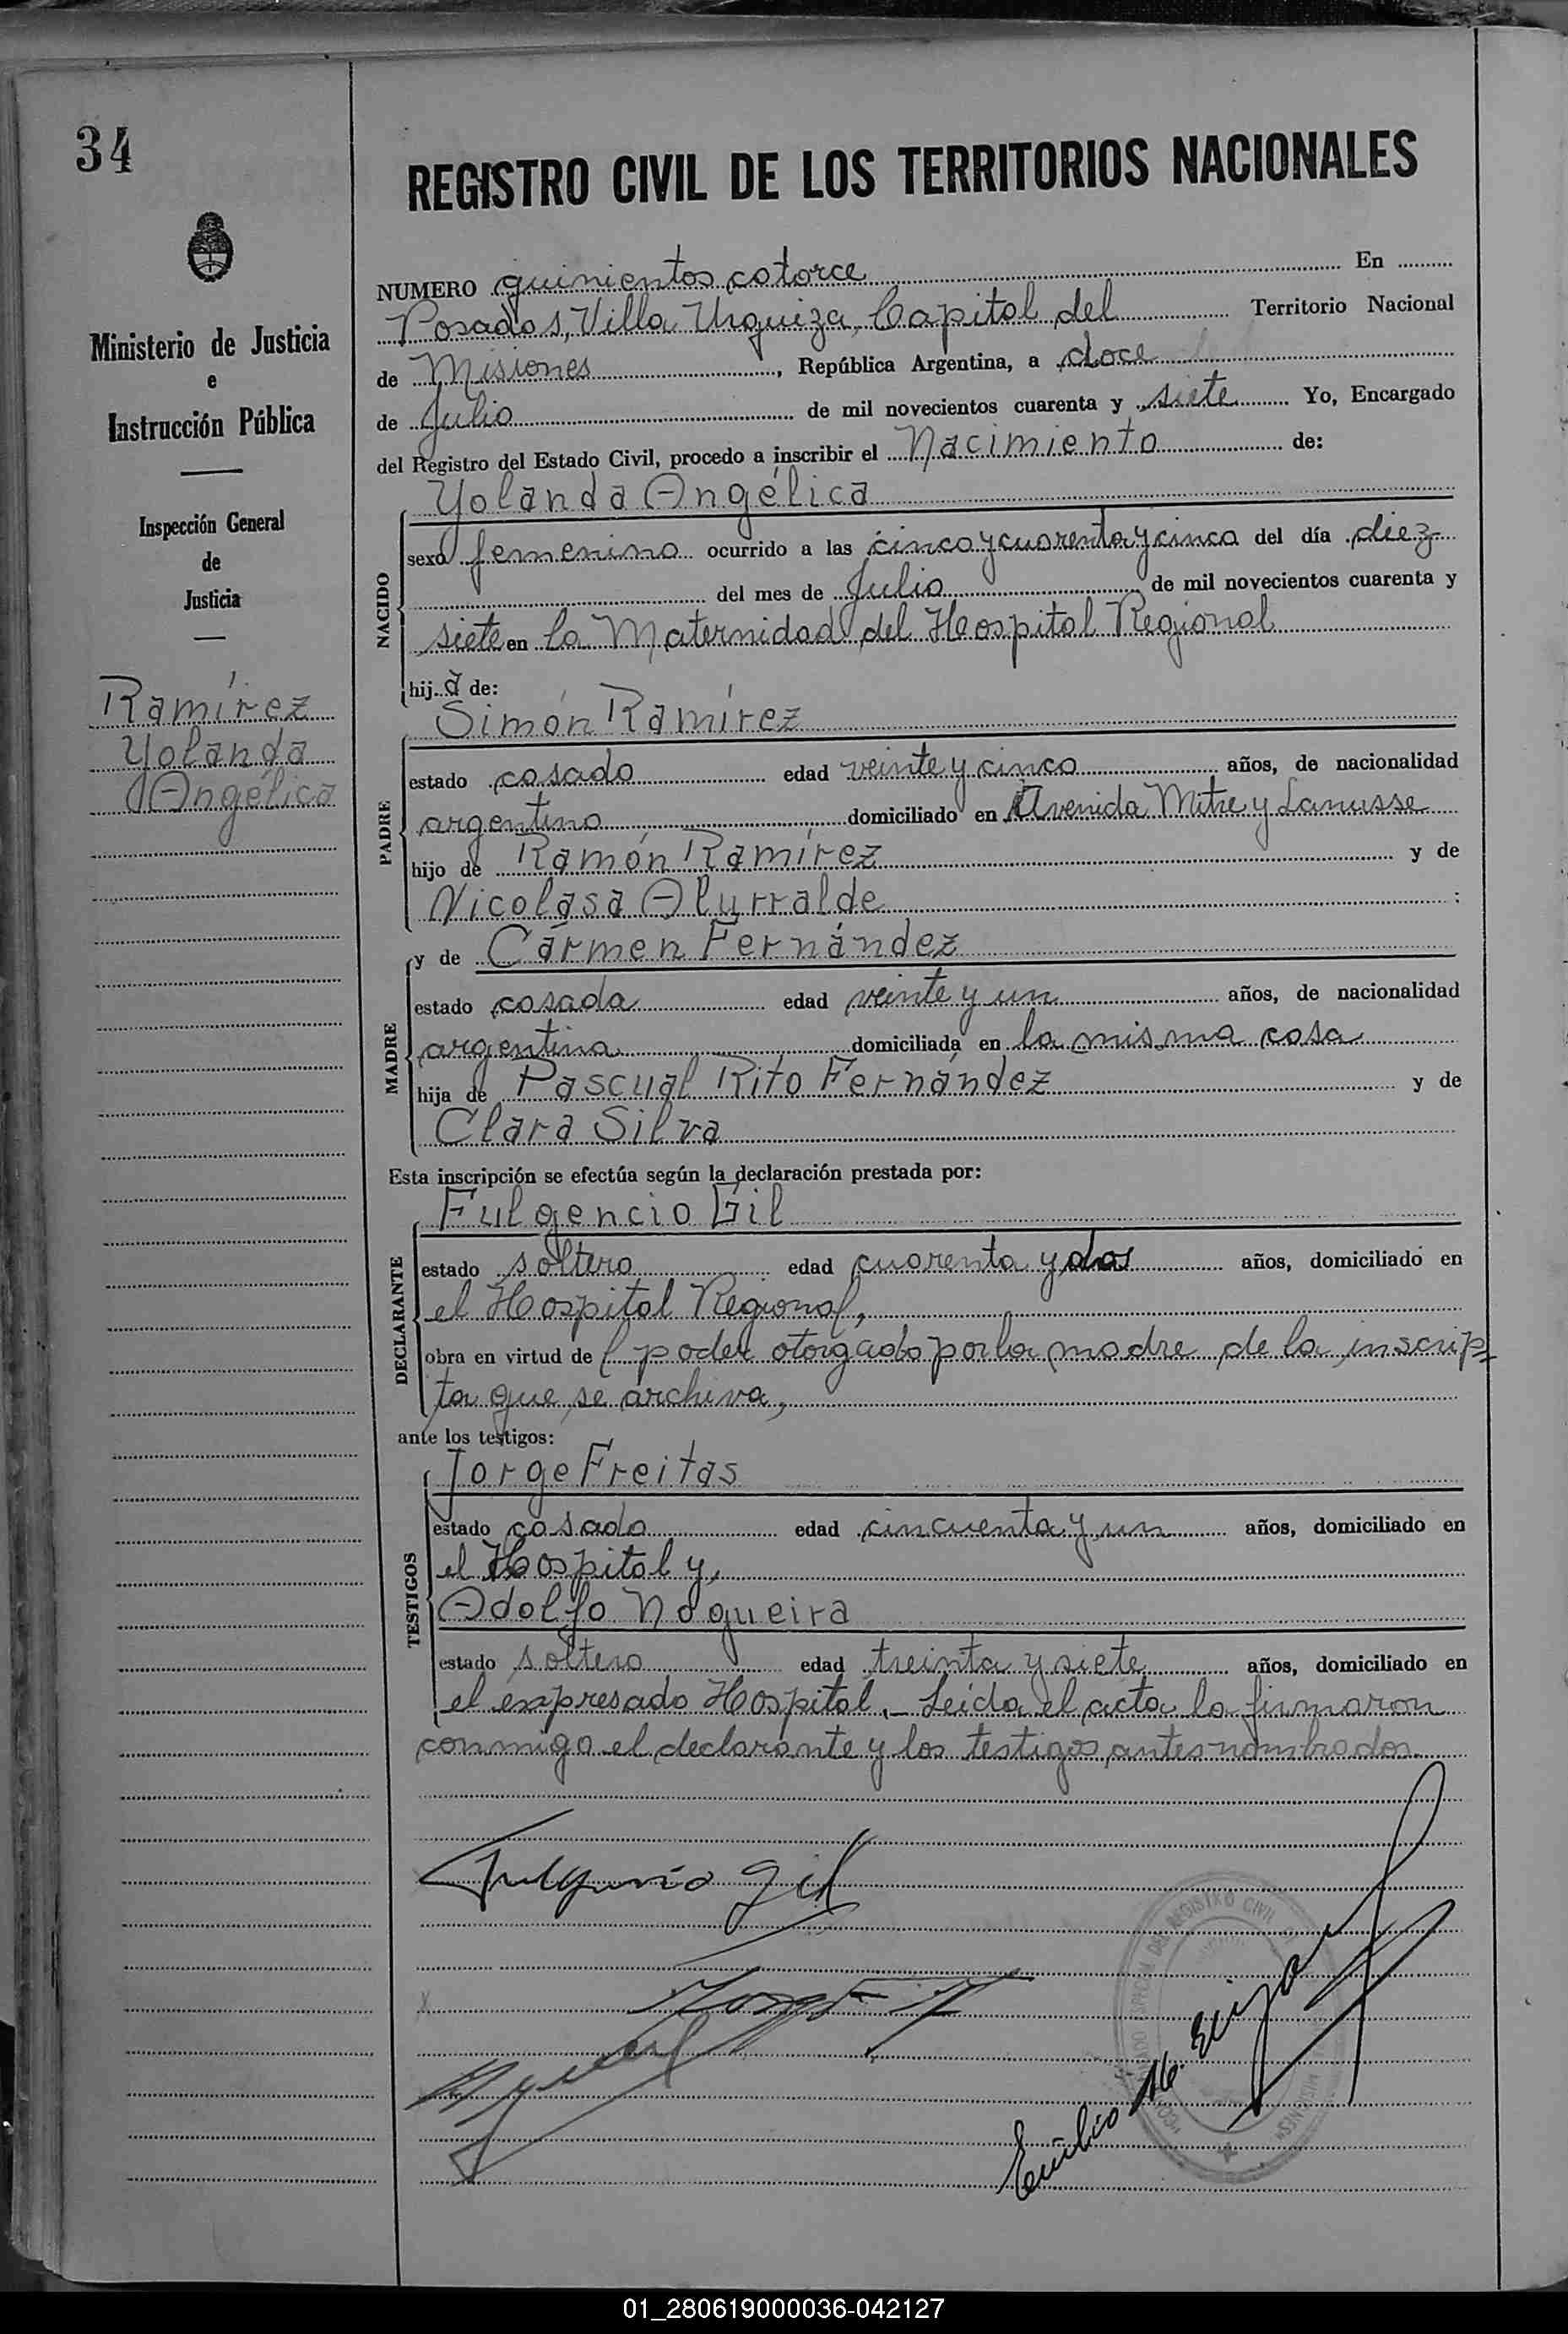 34
REGISTRO CIVIL DE LOS TERRITORIOS NACIONALES
Ministerio de Justicia
e
Instrucción Pública
Inspección General
de
Justicia
Ramírez
Yolanda
Angélica
NUMERO quinientos catorce En
Posadas, Villa Urquiza, Capital del Territorio Nacional
de Misiones, República Argentina, a doce
de Julio de mil novecientos cuarenta y siete Yo, Encargado
del Registro del Estado Civil, procedo a inscribir el Nacimiento de:
Yolanda Angélica
NACIDO
sexo femenino ocurrido a las cinco y cuarenta y cinco del día diez
del mes de Julio de mil novecientos cuarenta y
siete en la Maternidad del Hospital Regional
hij.a de:
Simón Ramírez
PADRE
estado casado edad veinte y cinco años, de nacionalidad
argentino domiciliado en Avenida Mitre y Lanusse
hijo de Ramón Ramírez y de
Nicolasa Alyrralde ;
y de Cármen Fernández
MADRE
estado casada edad veinte y un años, de nacionalidad
argentina domiciliada en la misma casa
hija de Pascual Rito Fernández y de
Clara Silva
Esta inscripción se efectúa según la declaración prestada por:
Fulgencio Gil
DECLARANTE
estado soltero edad cuarenta y dos años, domiciliado en
el Hospital Regional,
obra en virtud de l poder otorgado por la madre de la inscrip=
ta que se archiva,
ante los testigos:
Jorge Freitas
TESTIGOS
estado casado edad cincuenta y un años, domiciliado en
el Hospital y,
Adolfo Nogueira
estado soltero edad treinta y siete años, domiciliado en
el expresado Hospital.- Leida el acta la firmaron
conmigo el declarante y los testigos antes nombrados.
Fulgencio Gil
REGISTRO CIVIL
Emilio M.
01_280619000036-042127